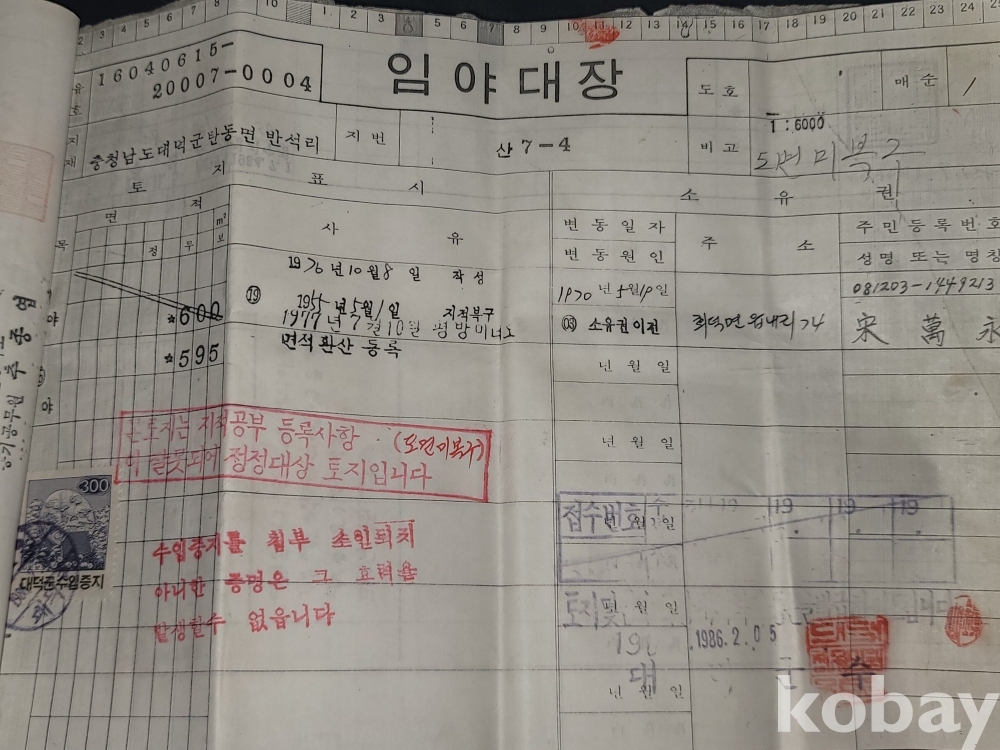 1 2 3 4 5 6 7 8 9 10 11 12 13 14 15 16 17 18 19 20 21 22 23 24
16040615-
20007-0004
임야대장
도호
매순
1:6000
충청남도대덕군탄동면 반석리
지번
산 7-4
비고
도면미복구
토지 표시
소유권
면적
m²
정 무 보
사유
변동일자
변동원인
주소
주민등록번호
성명 또는 명칭
1976년10월8일 작성
1970년5월19일
081203-1449213
⑲ 1955년5월1일 지적복구
*600
1977년7월10일 평방미터로
면적환산 등록
*595
(03) 소유권이전
宋萬永
년 월 일
년 월 일
본토지는 지적공부 등록사항 (도면미복구)
이 잘못되어 정정대상 토지입니다
300
대덕군수입증지
접수번호
19 19 19
수입증지를 첨부 소인되지
아니한 증명은 그 효력을
발생할수 없읍니다
1986.2.05
군수
년 월 일
kobay